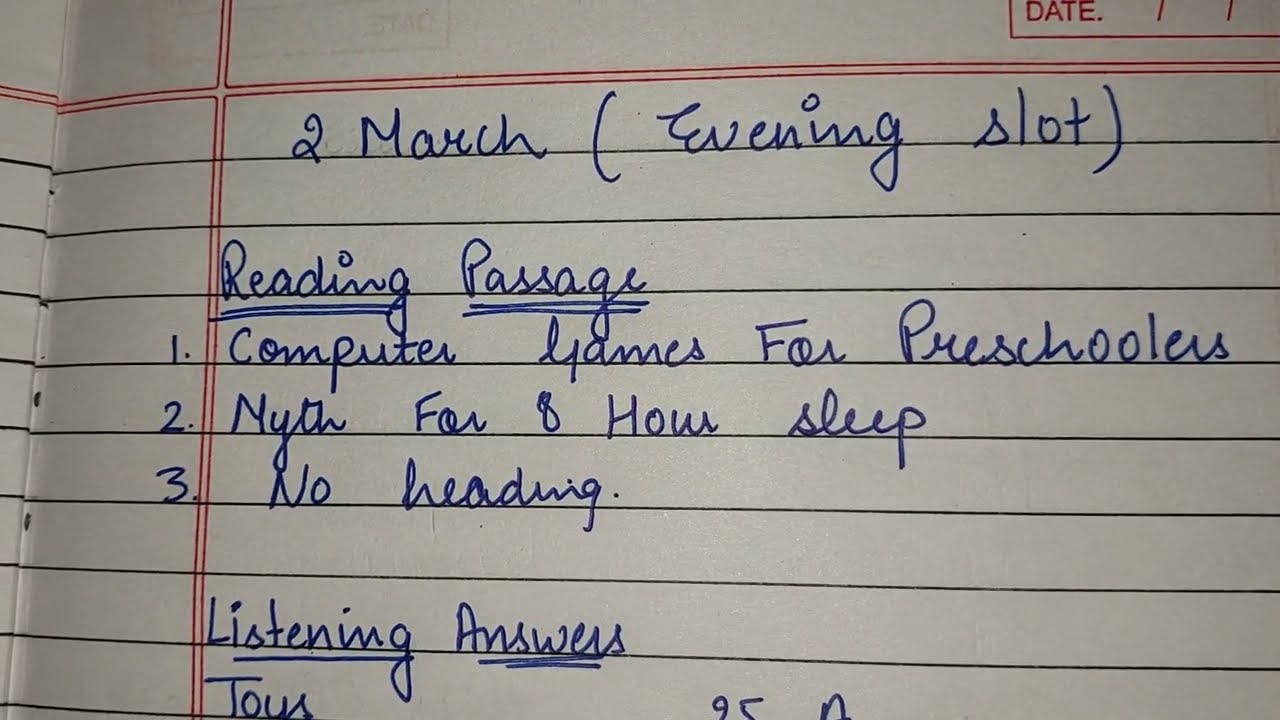 DATE. / /
2 March ( Evening slot )
Reading Passage
1. Computer Games For Preschoolers
2. Myth For 8 Hour sleep
3. No heading.
Listening Answers
Toys 25 A